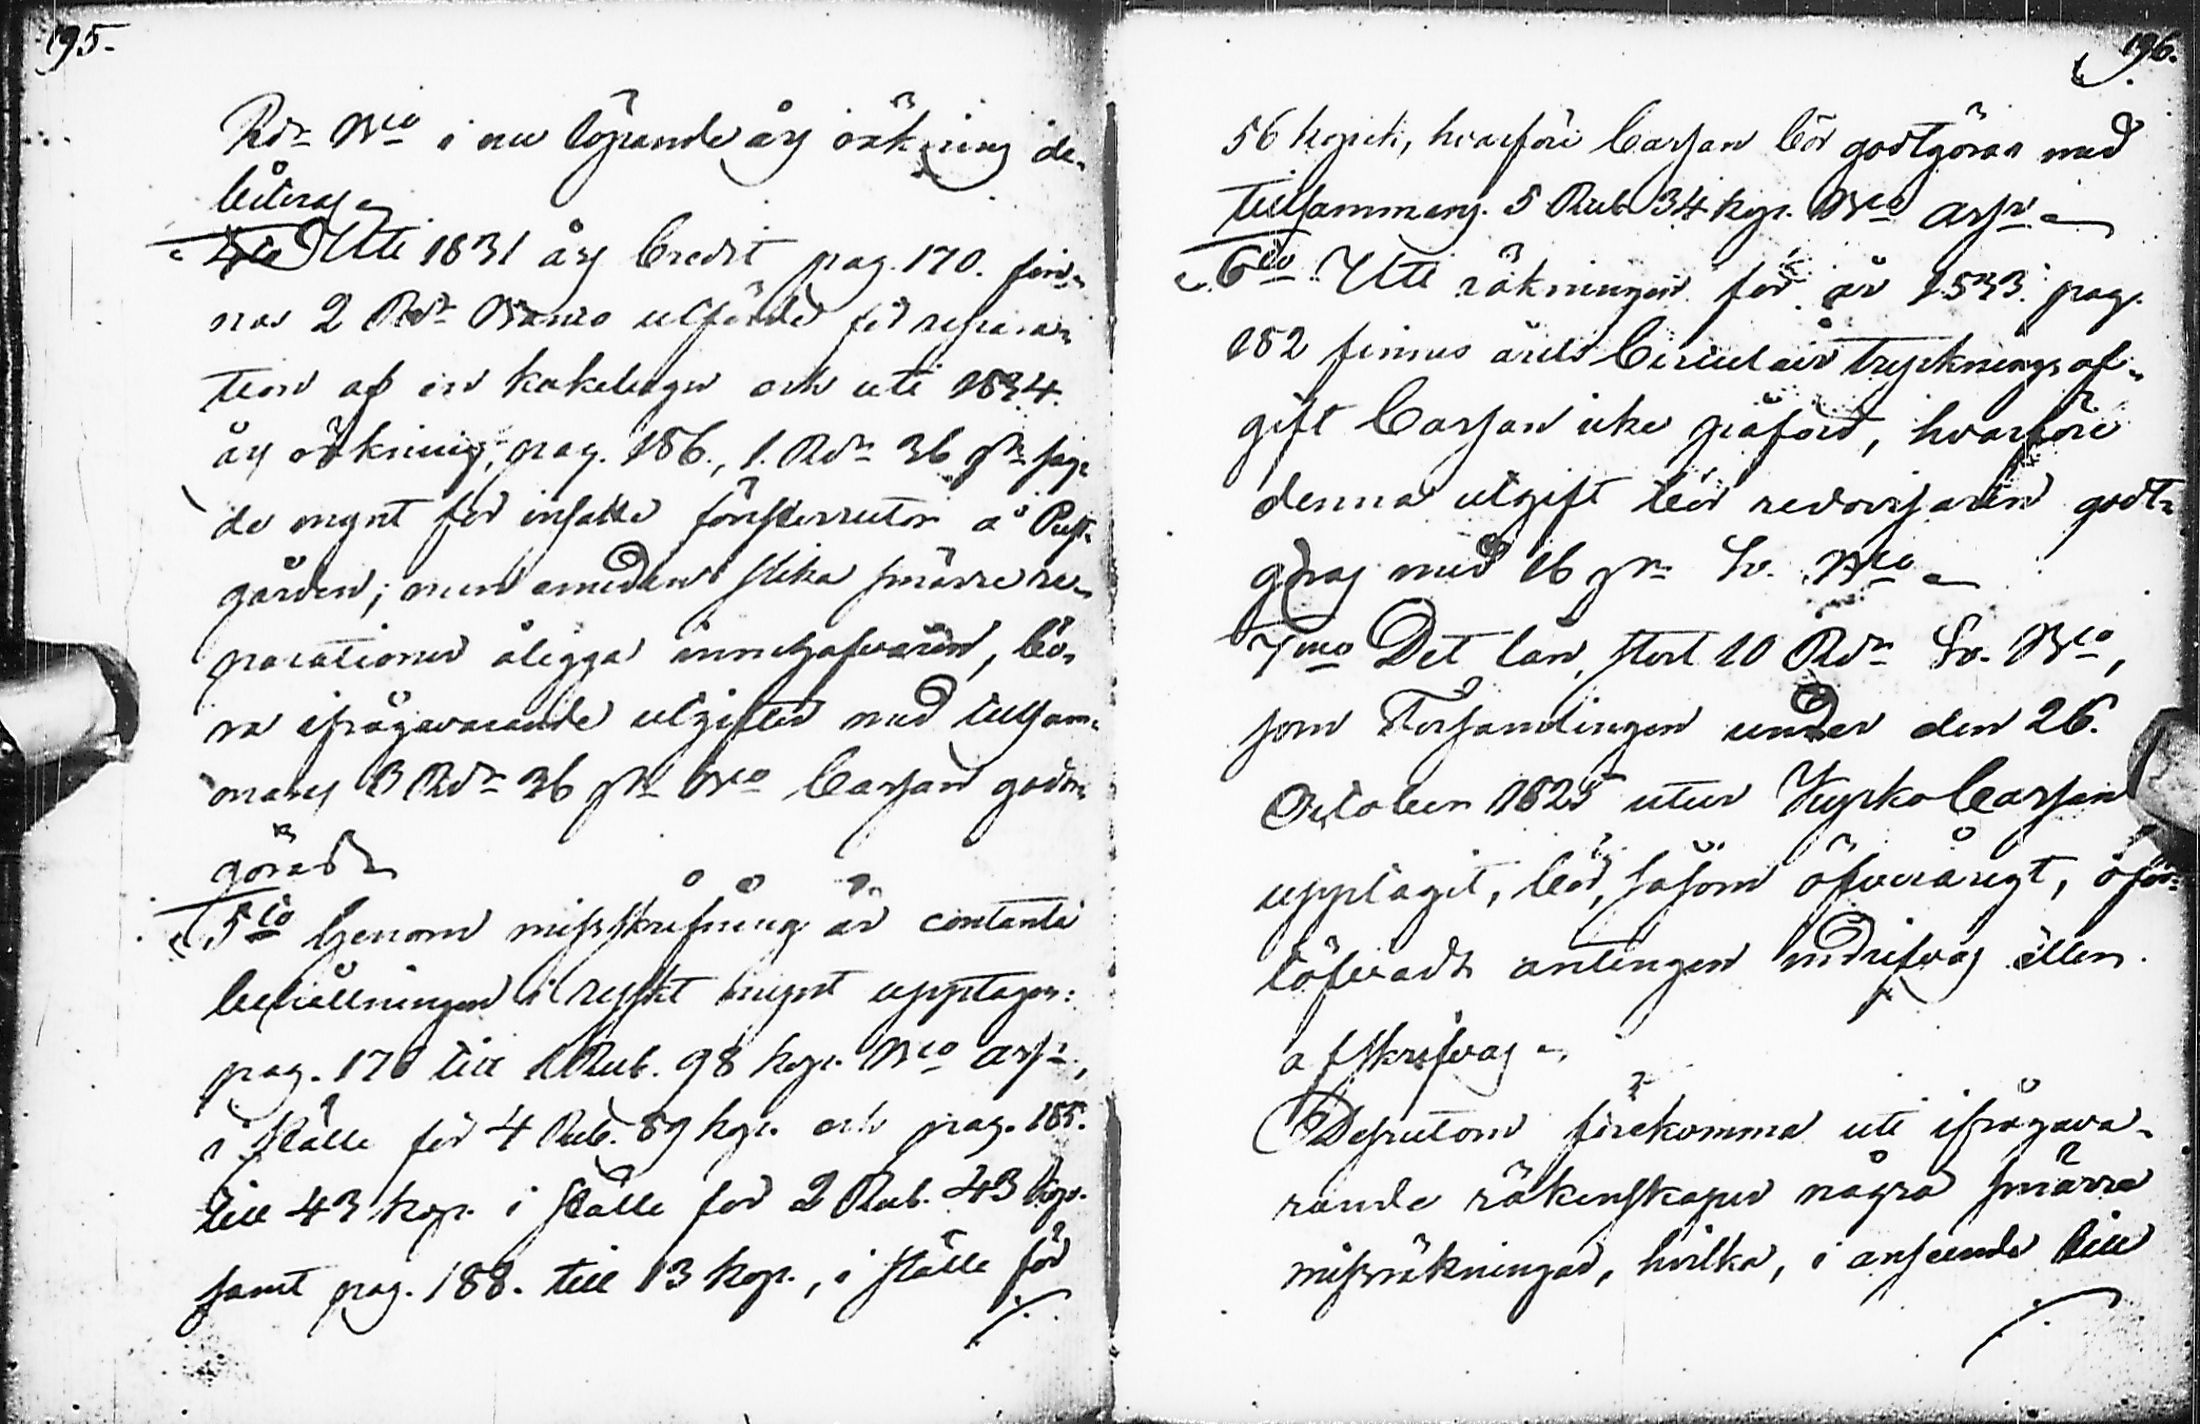 195.
Rdr Bco i nu löpande års räkning de-
biteras
4to Uti 1831 års Credit pag. 170. fin-
nas 2 Rdr Banco utförde för repara-
tion af en kakelugn och uti 1834
års räkning, pag. 186., 1. Rdr 36 sk sag-
de mynt för insatte fönsterrutor å Prest-
gården; men emedan slika smärre re-
parationer åligga innehafvaren, bö-
ra ifrågavarande utgifter med tillsam-
mans 3 Rdr 36 sk Bco Cassan godt-
göras
5to Genom misskrifning är contanta
behållningen i ryskt mynt upptagen:
pag. 178 till 1 Rub. 98 kop. Bco assr,
i ställe för 4 Rub. 89 kop. och pag. 185.
till 43 kop. i ställe för 2 Rub. 43 kop.
samt pag. 188. till 13 kop., i ställe för
196.
56 kopek, hvarföre Cassan bör godtgöras med
tillsammans. 5 Rub 34 kop. Bco assr
6to Uti räkningen för år 1833 pag.
182 finnes årets Circulair trycknings af-
gift Cassan icke påförd, hvarföre
denna utgift bör redovisaren godt-
göras med 16 sk Sv. Bco
7mo Det lån, stort 10 Rdr Sv. Bco,
som Församlingen under den 26.
October 1825 utur Kyrko Cassan
upptagit, bör, såsom öfverårigt, oför-
töfvadt antingen indrifvas eller
afskrifvas
Dessutom förekomma uti ifrågava-
rande räkenskaper några smärre
missräkningar, hvilka, i anseende till